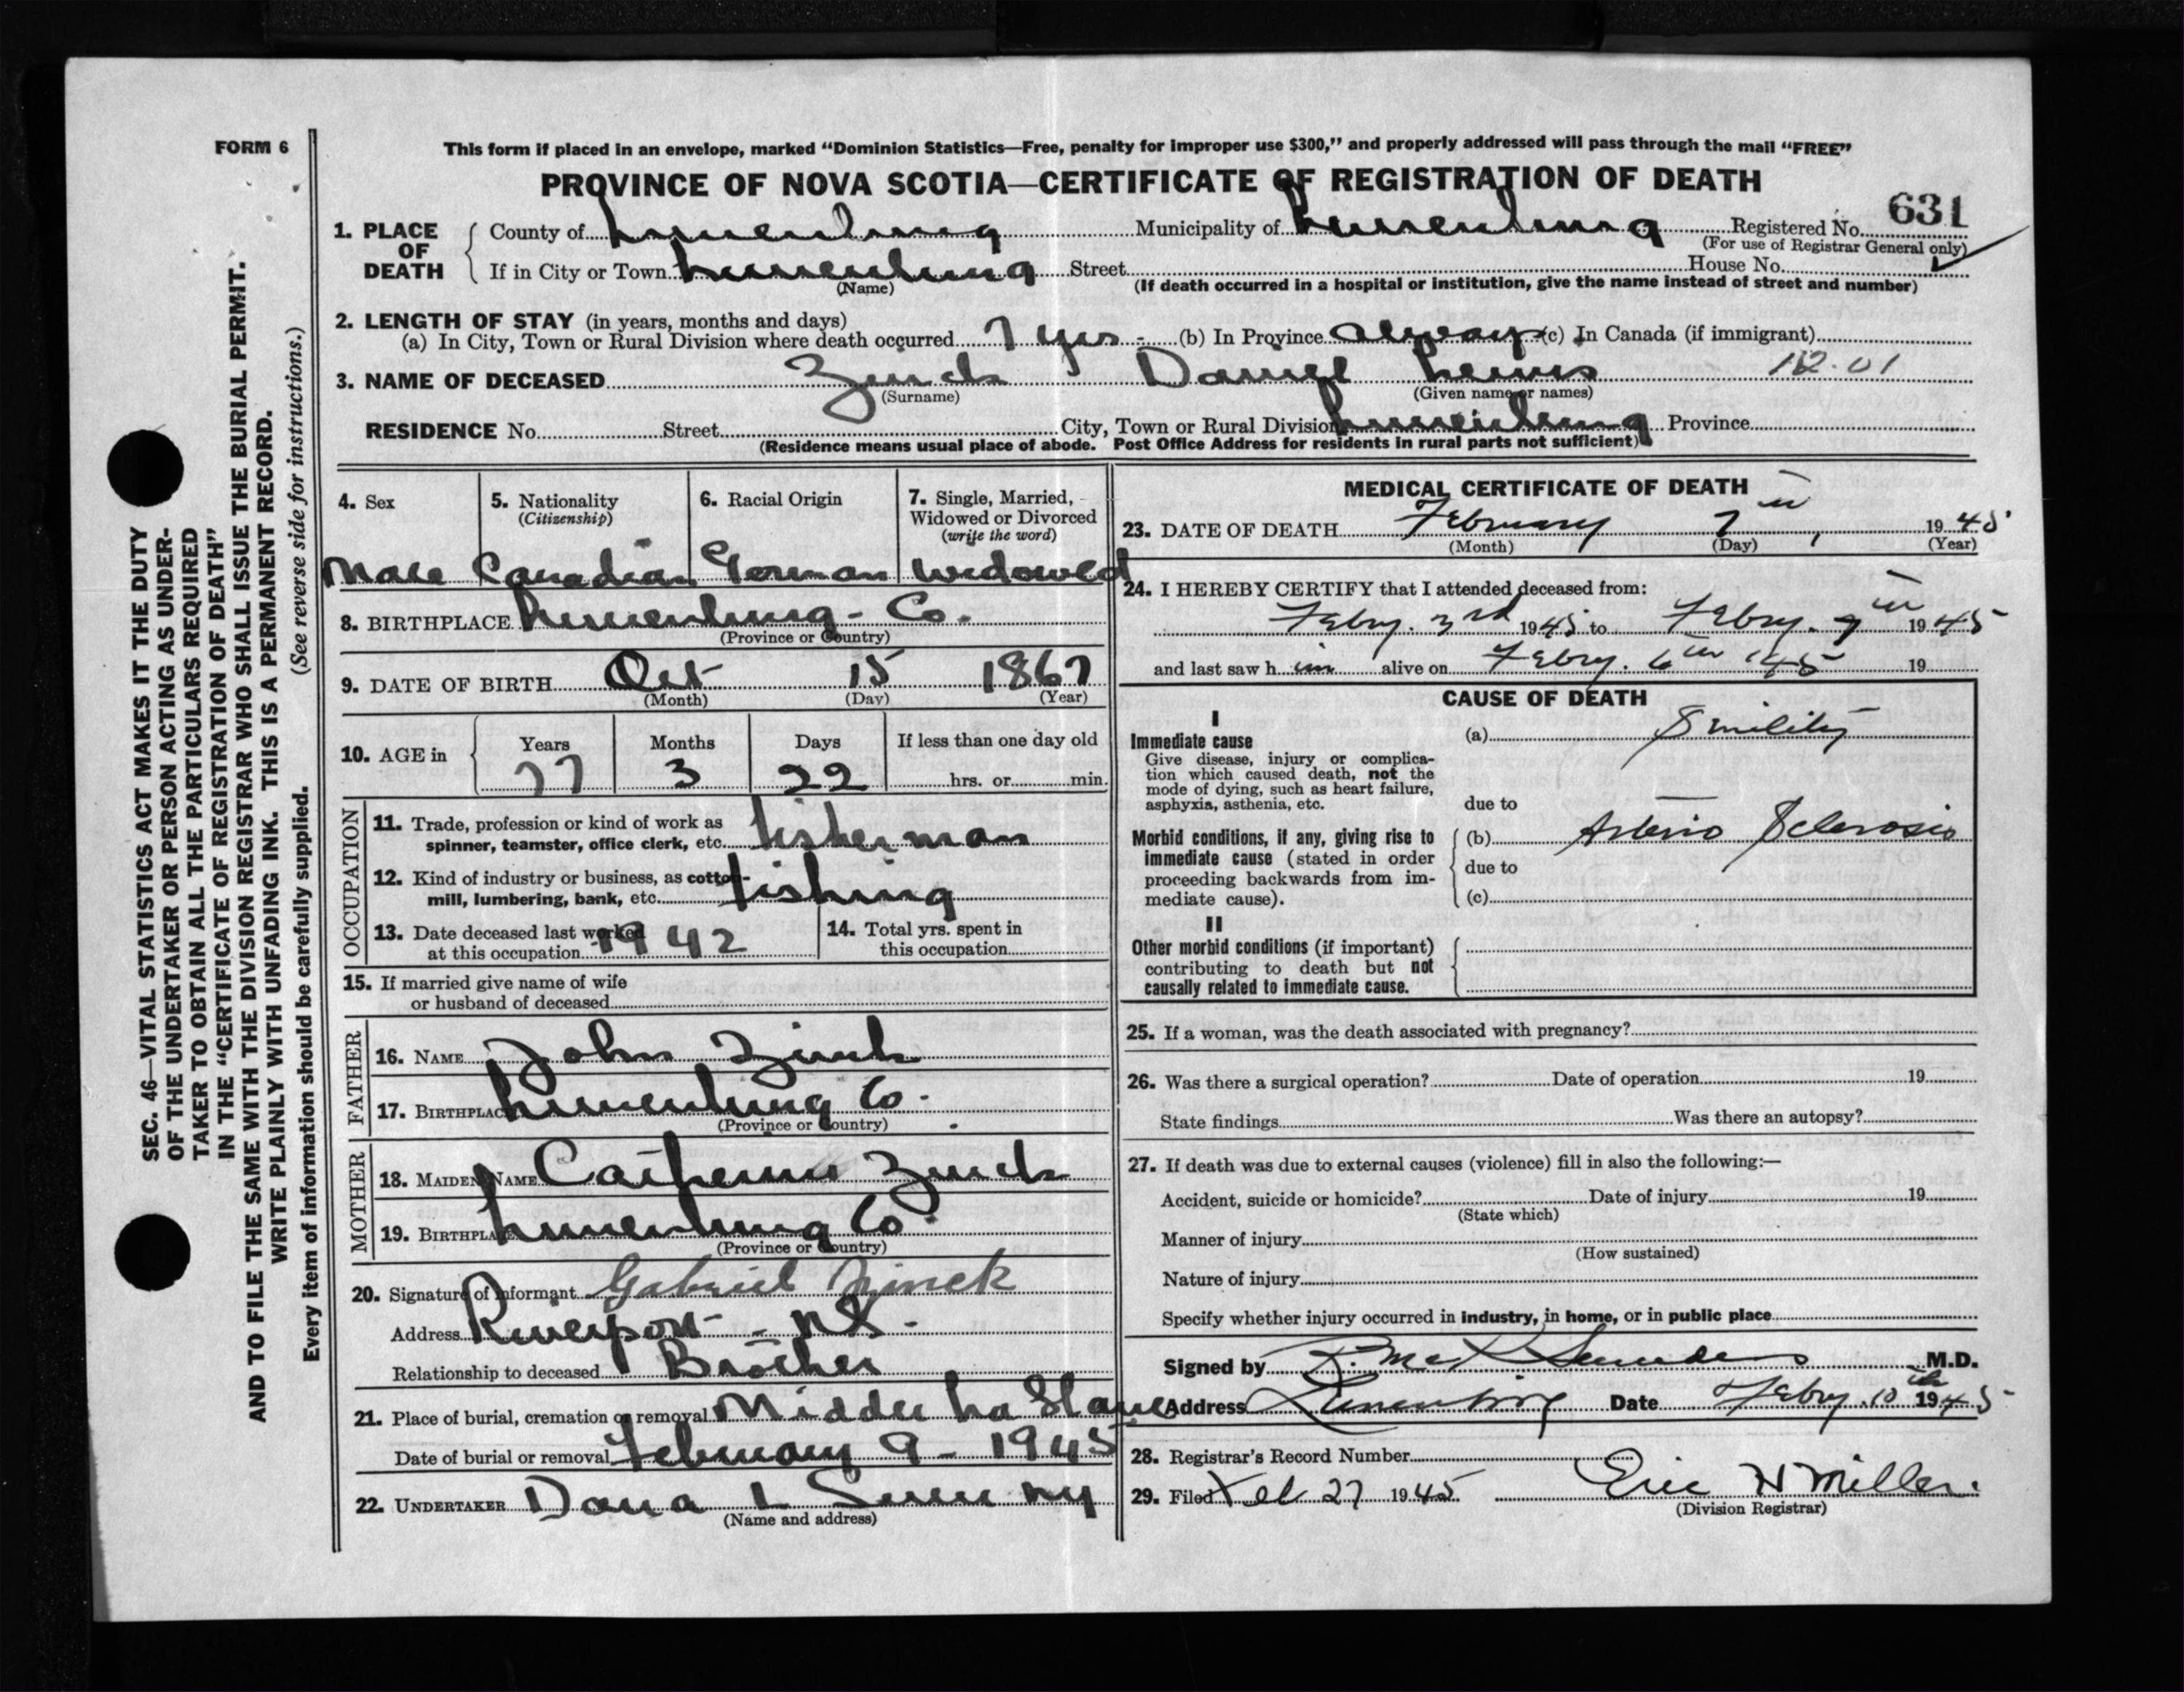 FORM 6
This form if placed in an envelope, marked “Dominion Statistics—Free, penalty for improper use $300,” and properly addressed will pass through the mail “FREE”
PROVINCE OF NOVA SCOTIA—CERTIFICATE OF REGISTRATION OF DEATH
631
1. PLACE OF DEATH County of Lunenburg Municipality of Lunenburg Registered No.
(For use of Registrar General only)
If in City or Town Lunenburg Street House No.
(Name) (If death occurred in a hospital or institution, give the name instead of street and number)
2. LENGTH OF STAY (in years, months and days)
(a) In City, Town or Rural Division where death occurred 7 yrs - (b) In Province always (c) In Canada (if immigrant)
3. NAME OF DECEASED Zinck Daniel Lewis 12.01
(Surname) (Given name or names)
RESIDENCE No. Street City, Town or Rural Division Lunenburg Province
(Residence means usual place of abode. Post Office Address for residents in rural parts not sufficient)
4. Sex 5. Nationality (Citizenship) 6. Racial Origin 7. Single, Married, Widowed or Divorced (write the word)
Male Canadian German Widowed
8. BIRTHPLACE Lunenburg - Co.
(Province or Country)
9. DATE OF BIRTH Oct 15 1867
(Month) (Day) (Year)
10. AGE in Years Months Days If less than one day old
77 3 22 hrs. or min.
OCCUPATION
11. Trade, profession or kind of work as
spinner, teamster, office clerk, etc. fisherman
12. Kind of industry or business, as cotton-
mill, lumbering, bank, etc. fishing
13. Date deceased last worked
at this occupation 1942
14. Total yrs. spent in
this occupation
15. If married give name of wife
or husband of deceased
FATHER
16. NAME John Zinck
17. BIRTHPLACE Lunenburg Co.
(Province or Country)
MOTHER
18. MAIDEN NAME Catherine Zinck
19. BIRTHPLACE Lunenburg Co.
(Province or Country)
20. Signature of Informant Gabriel Zinck
Address Riverport - N.S.
Relationship to deceased Brother
21. Place of burial, cremation or removal Middle La Have
Date of burial or removal February 9 - 1945
22. UNDERTAKER Dana L Sweeny
(Name and address)
MEDICAL CERTIFICATE OF DEATH
23. DATE OF DEATH February 7th, 1945
(Month) (Day) (Year)
24. I HEREBY CERTIFY that I attended deceased from:
Febry. 3rd 1945 to Febry. 7th 1945
and last saw h im alive on Febry. 6th '45 19
CAUSE OF DEATH
I
Immediate cause
Give disease, injury or complica-
tion which caused death, not the
mode of dying, such as heart failure,
asphyxia, asthenia, etc.
(a) Senility
due to
Morbid conditions, if any, giving rise to
immediate cause (stated in order
proceeding backwards from im-
mediate cause).
(b) Arterio Sclerosis
due to
(c)
II
Other morbid conditions (if important)
contributing to death but not
causally related to immediate cause.
25. If a woman, was the death associated with pregnancy?
26. Was there a surgical operation? Date of operation 19
State findings Was there an autopsy?
27. If death was due to external causes (violence) fill in also the following:—
Accident, suicide or homicide? Date of injury 19
(State which)
Manner of injury
(How sustained)
Nature of injury
Specify whether injury occurred in industry, in home, or in public place
Signed by R. McK Saunders M.D.
Address Lunenburg Date Febry. 10th 1945
28. Registrar's Record Number
29. Filed Feb 27 1945 Eric H Miller.
(Division Registrar)
SEC. 46—VITAL STATISTICS ACT MAKES IT THE DUTY
OF THE UNDERTAKER OR PERSON ACTING AS UNDER-
TAKER TO OBTAIN ALL THE PARTICULARS REQUIRED
IN THE “CERTIFICATE OF REGISTRATION OF DEATH”
AND TO FILE THE SAME WITH THE DIVISION REGISTRAR WHO SHALL ISSUE THE BURIAL PERMIT.
WRITE PLAINLY WITH UNFADING INK. THIS IS A PERMANENT RECORD.
Every item of information should be carefully supplied. (See reverse side for instructions.)